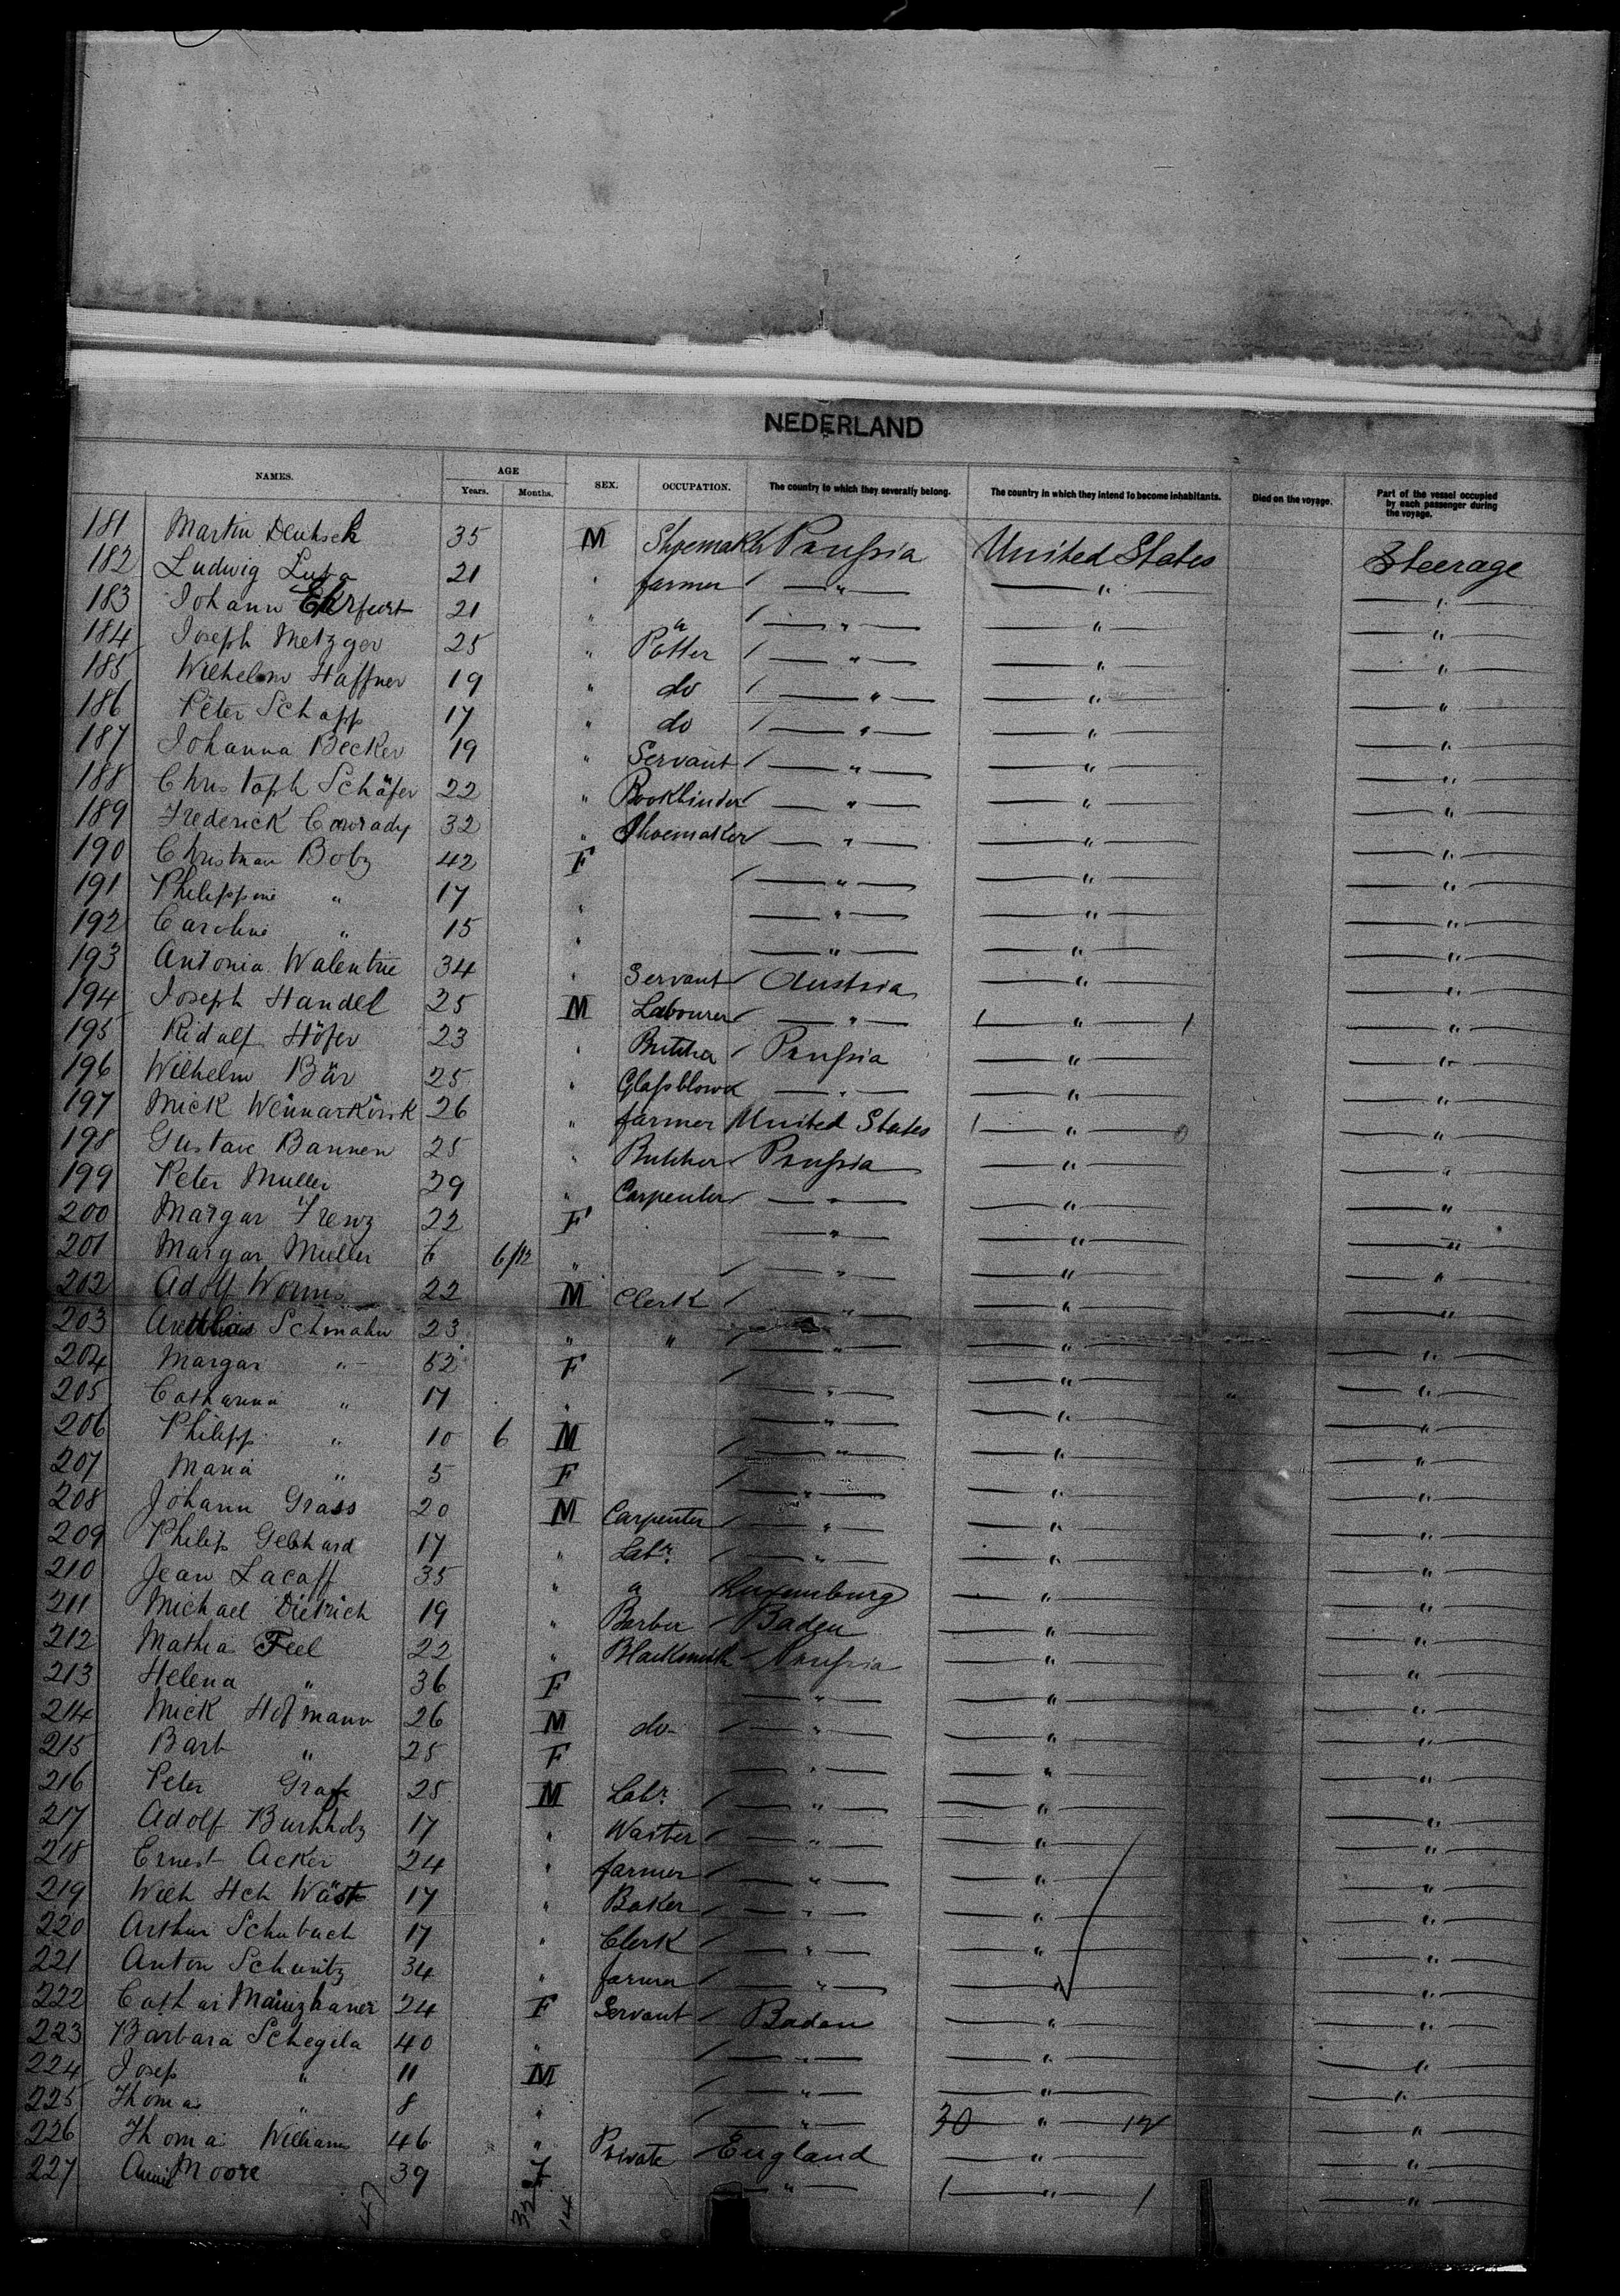 NEDERLAND
NAMES. AGE Years. Months. SEX. OCCUPATION. The country to which they severally belong. The country in which they intend to become inhabitants. Died on the voyage. Part of the vessel occupied by each passenger during the voyage.
181 Martin Deutsch 35 M Shoemaker Prussia United States Steerage
182 Ludwig 21 " farmer " " "
183 Johann Ehrfurt 21 " " " " "
184 Joseph Metzger 25 " Potter " " "
185 Wilhelm Haffner 19 " do " " "
186 Peter Schapp 17 " do " " "
187 Johanna Becker 19 " Servant " " "
188 Christoph Schäfer 22 " Bookbinder " " "
189 Frederick Conrady 32 " Shoemaker " " "
190 Christian Boby 42 F " " "
191 Philippine " 17 " " " "
192 Caroline " 15 " " " "
193 Antonia Walentine 34 " Servant Austria " "
194 Joseph Handel 25 M Labourer " 1 " 1 "
195 Ridalf Höfer 23 " Butcher Prussia " "
196 Wilhelm Bär 25 " Glassblower " " "
197 Mick 26 " farmer United States 1 " 0 "
198 Gustave Bannen 25 " Butcher Prussia " "
199 Peter Muller 29 " Carpenter " " "
200 Margar Frenz 22 F " " "
201 Margar Muller 6 6/12 " " " "
202 Adolf Worms 22 M Clerk " " "
203 Schmahn 23 " " " " "
204 Margar " 52 F " " "
205 Catharina " 17 " " " " "
206 Philipp " 10 6 M " " "
207 Maria " 5 F " " "
208 Johann Grass 20 M Carpenter " " "
209 Philip Gebhard 17 " Labr. " " "
210 Jean Lacaff 35 " " Luxemburg " "
211 Michael Dietrich 19 " Barber Baden " "
212 Mathia Feel 22 " Blacksmith Prussia " "
213 Helena " 36 F " " "
214 Mick Hofmann 26 M do " " "
215 Barb " 25 F " " "
216 Peter Graf 25 M Labr. " " "
217 Adolf Burkholz 17 " Waiter " " "
218 Ernest Acker 24 " farmer " " "
219 Wilh Hch Wäst 17 " Baker " " "
220 Arthur Schubach 17 " Clerk " " "
221 Anton Schmitz 34 " farmer " " "
222 Cathar Mainzhaner 24 F Servant Baden " "
223 Barbara Schegila 40 " " " "
224 Josep " 11 M " " "
225 Thoma " 8 " " 30 " 12 "
226 Thoma William 46 " Private England " "
227 Annie Moore 39 F " 1 " 1 "
47 32 14